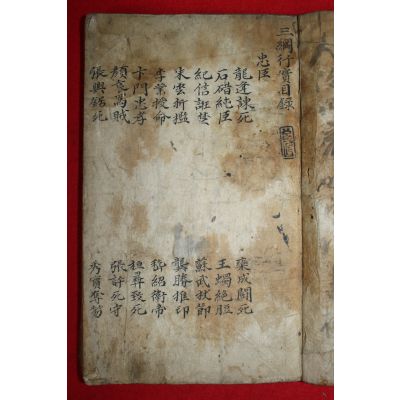 三綱行實目錄
忠臣
龍逢諫死
欒成鬪死
石碏純臣
王蠋絕脰
紀信誑楚
蘇武杖節
朱雲折檻
龔勝推印
李業授命
嵇紹衛帝
卞門忠孝
桓彝致死
顏袁罵賊
張許死守
張興鋸死
秀實奪笏